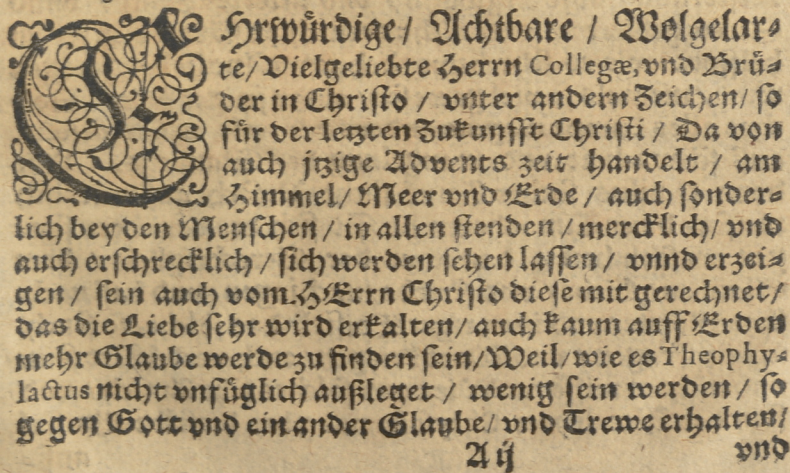 EHrwuͤrdige / Achtbare / Wolgelar⸗
te / Vielgeliebte Herrn Collegæ, vnd Bruͤ⸗
der in Christo / vnter andern Zeichen / so
fuͤr der letzten Zukunfft Christi / Da von
auch jtzige Advents zeit handelt / am
Himmel / Meer vnd Erde / auch sonder⸗
lich bey den Menschen / in allen stenden / mercklich / vnd
auch erschrecklich / sich werden sehen lassen / vnnd erzei⸗
gen / sein auch vom HErrn Christo diese mit gerechnet /
das die Liebe sehr wird erkalten / auch kaum auff Erden
mehr Glaube werde zu finden sein / Weil / wie es Theophy⸗
lactus nicht vnfuͤglich außleget / wenig sein werden / so
gegen Gott vnd ein ander Glaube / vnd Trewe erhalten /
A ij
vnd